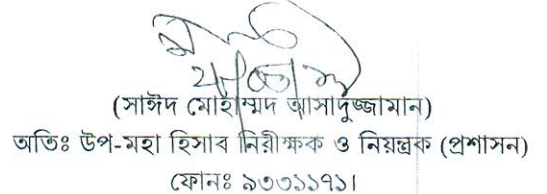 (সাঈদ মোহাম্মদ আসাদুজ্জামান)
অতিঃ উপ-মহা হিসাব নিরীক্ষক ও নিয়ন্ত্রক (প্রশাসন)
ফোনঃ ৯৩৩১১৭১।